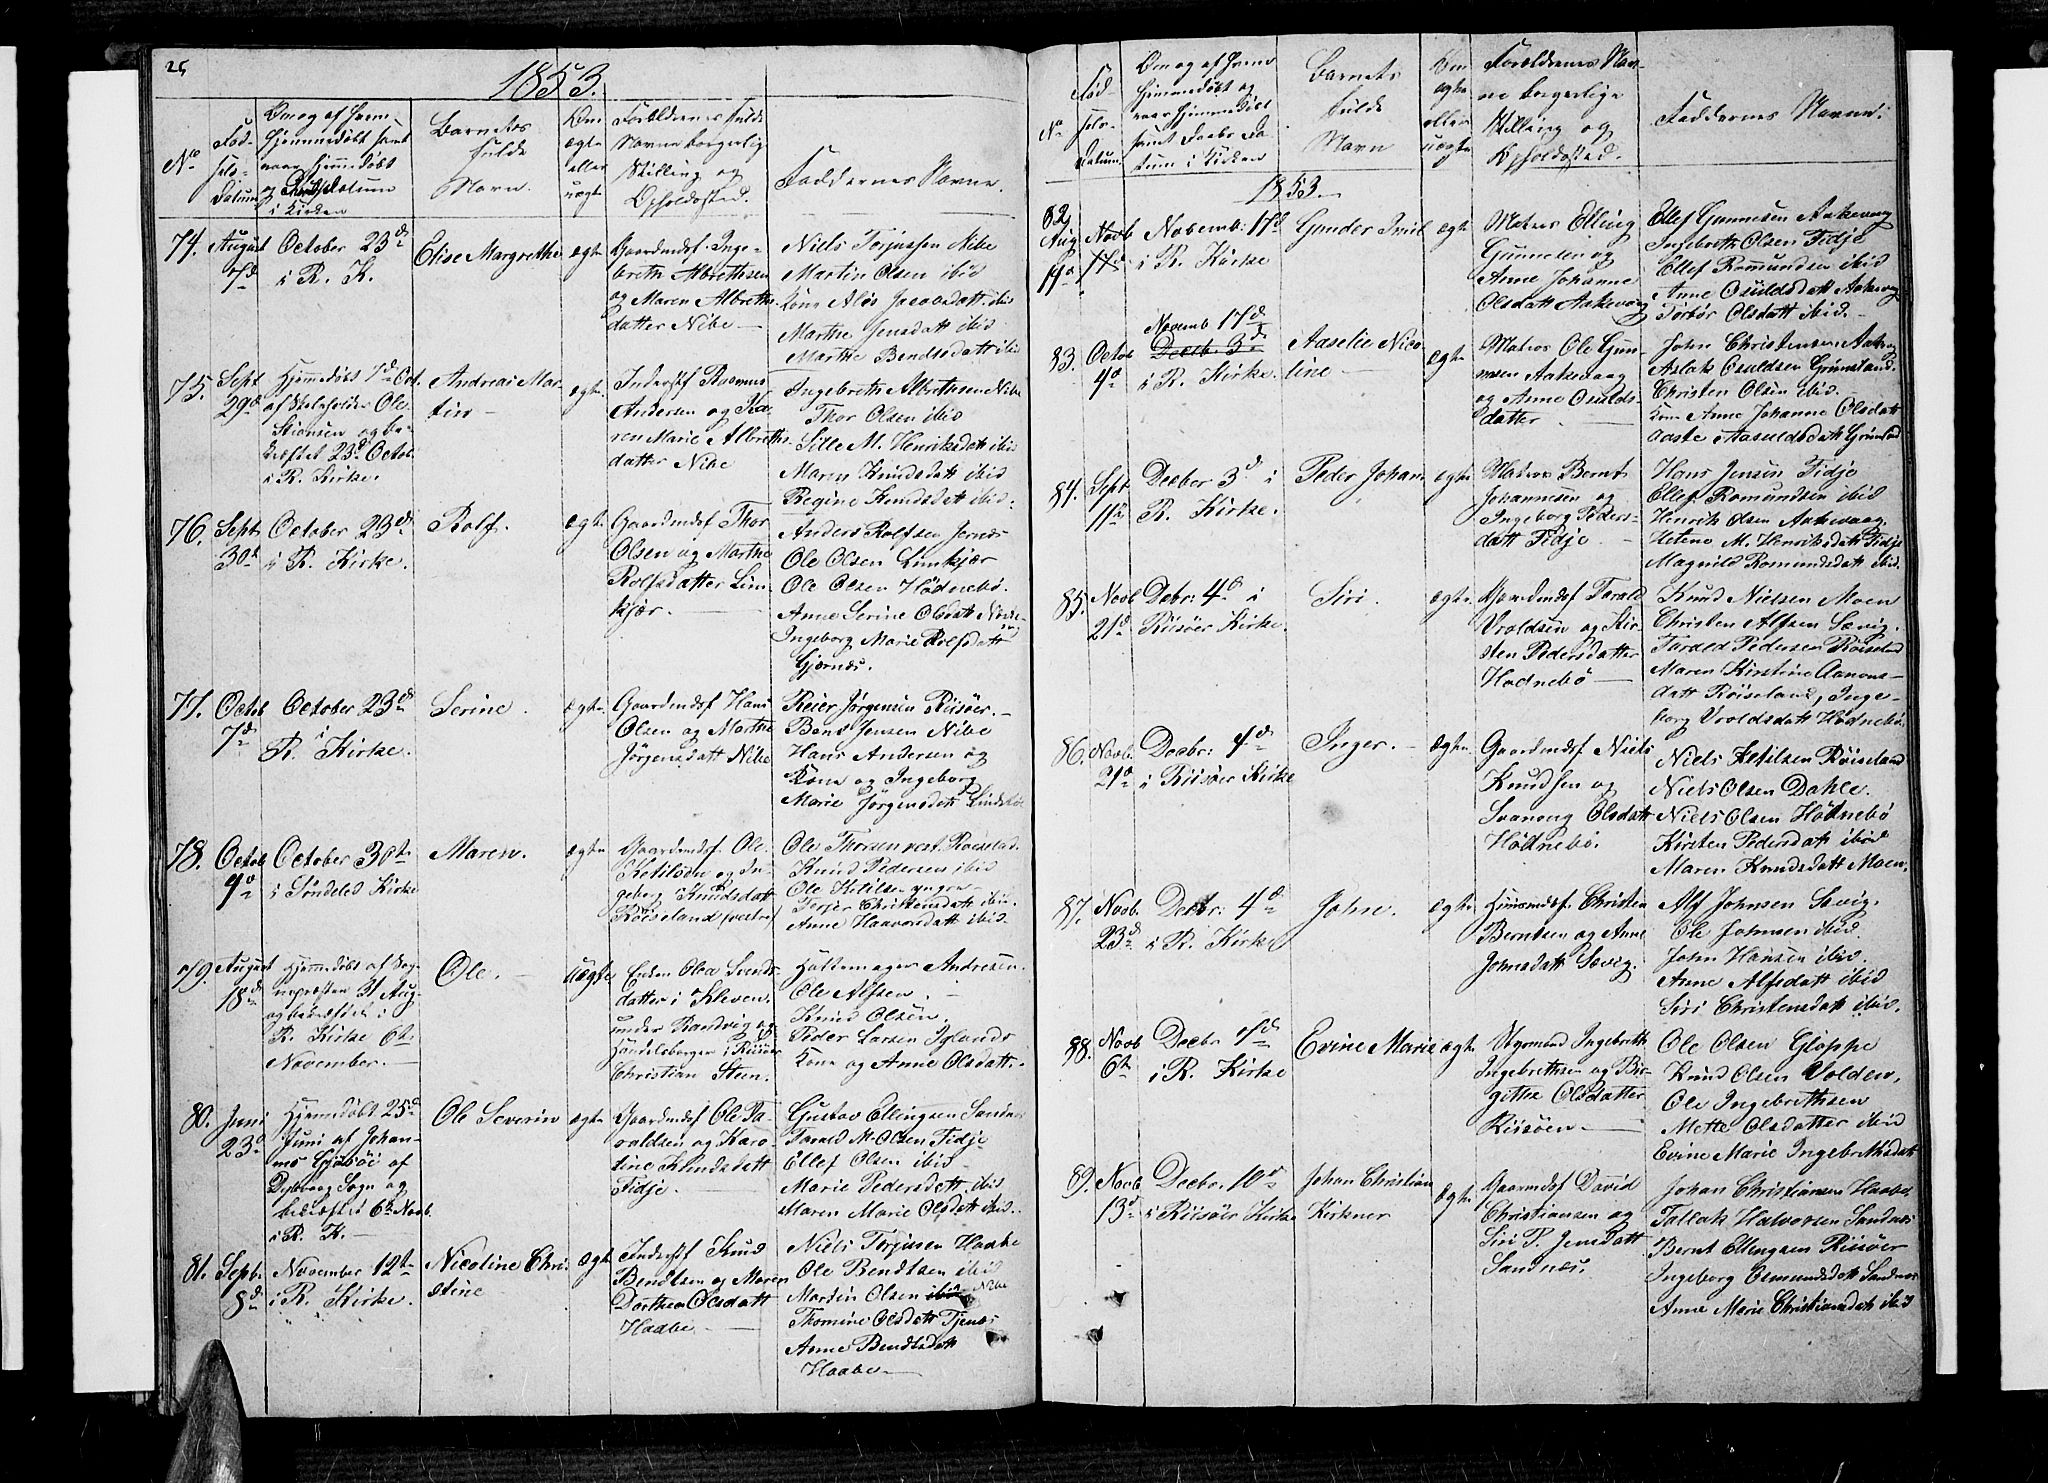 25
1853.
No
Fød-
sels-
Datum
Om og af hvem
hjemmedøbt samt
naar hjemmedøbt
og Daabs Datum
i Kirken
Barnets
fulde
Navn.
Om
ægte
eller
uægte
Forældrenes fulde
Navne borgerlig
Stilling og
Opholdssted.
Faddernes Navne.
74.
August
7d
October 23d
i R. K.
Elise Margrethe
ægte
Gaardmdsf. Inge-
breth Albrethsen
og Maren Albreths-
datter Nibe
Niels Torjussen Nibe
Martin Olsen ibid
Kone Jacobsdatt. ibid
Marthe Jensdatt ibid
Marthe Bendsdatt ibid
75.
Sept
29d
Hjemmedøbt 7d Oct.
af Skoleholder Ole
Stiansen og be-
kræftet 23d Octob.
i R. Kirke.
Andreas Mar-
tin
ægte
Inderstf Rasmus
Andersen og Ka-
ren Marie Albreths-
datter Nibe
Ingebreth Albrethsen Nibe
Thor Olsen ibid
Sille M. Henriksdatt ibid
Maren Knudsdatt ibid
Regine Knudsdatt ibid.
76.
Sept.
30t
October 23d
i R. Kirke.
Rolf.
ægte
Gaardmdsf Thor
Olsen og Marthe
Rolfsdatter Lim-
kjær.
Anders Rolfsen Jernæs
Ole Olsen Limkjær
Ole Olsen Hødnebø.
Anne Serine Olsdatt
Ingeborg Marie Rolfsdatt
Gjernæs.
77.
Octob
7d
October 23d
i
R. Kirke.
Serine.
ægte
Gaardmdsf Hans
Olsen og Marthe
Jørgensdatt Nibe
Reier Jørgensen Riisøer.
Bend Jensen Nibe
Hans Andersen og
Kone og Ingeborg
Marie Jørgensdatt
78.
Octob
9d
October 30te
i Søndeled Kirke
Maren.
ægte
Gaardmdsf Ole
Ketilsen og In-
geborg Knudsdatt
Røiseland (vestre)
Ole Thorsen vest. Røiseland
Knud Pedersen ibid
Ole Ketilsen yngre
Terjer Christensdatt ibid
Anne Haavorsdatt ibid.
79.
August
18d
Hjemmedøbt af Sog-
nepræsten 31 Aug.
og bekræftet i
R. Kirke 6te
November.
Ole.
uægte
Enken Olea Svends-
datter i Kleven
under Randvig og
Handelsborger i Riisøer
Christian Steen.
Hattemager Andresen.
Ole Alfsen.
Knud Olsen.
Peder Larsen Iglands
Kone og Anne Olsdatt.
80.
Juni
23d
Hjemmedøbt 25d
Juni af Johan-
nes Gjøsøi af
Dybvaag Sogn og
bekræftet 6te Novb.
i R. K.
Ole Severin
ægte
Gaardmdsf Ole Ta-
raldsen og Karo-
line Knudsdatt
Fidje.
Gustav Ellingsen Sandnæs
Tarald M. Olsen Fidje
Ellef Olsen ibid
Marie Pedersdatt ibid
Maren Marie Olsdatt ibid.
81.
Septr.
8d
November 12te
i R. Kirke.
Nicoline Chri-
stine
ægte
Inderstf Knud
Bendtsen og Maren
Dorthea Olsdatt
Haabe
Niels Torjusen Haabe
Ole Bendtsen ibid
Martin Olsen ibid Nibe
Thomine Olsdatt Tjenæs
Anne Bendtsdatt
Haabe
No
Fød
sels-
Datum
Om og af hvem
hjemmedøbt og
naar hjemmedøbt
samt Daabs Da-
tum i Kirken
Barnets
fulde
Navn
Om
ægte
eller
uægte
Forældrenes Nav-
ne borgerlige
Stilling og
Opholdssted.
Faddernes Navne:
1853.
82
Aug
11d
Novb
17d
Novemb: 17d
i R. Kirke
Gunder Emil
ægte
Matros Elling
Gunnesen og
Anne Johanne
Olsdatt Aakevaag
Ellef Gunnesen Aakevaag
Ingebreth Olsen Fidje
Ellef Romundsen ibid
Anne Osuldsdatt Aakevaag
Torbør Olsdatt ibid.
83.
Octob
4d
Novemb 17d
Decbr. 3d
i R. Kirke.
Aaselie Nico-
line
ægte
Matros Ole Gun-
nesen Aakevaag
og Anne Osulds-
datter
John Christensen Aakevaag
Aslak Osuldsen Grimsland.
Christen Olsen ibid.
Kone Anne Johanne Olsdatt
Aaste Aasuldsdatt Grimsland
84.
Sept
11te
Decber 3d i
R. Kirke.
Peder Johan
ægte
Matros Bernt
Johannesen og
Ingeborg Peders-
datt Fidje
Hans Jensen Fidje
Ellef Romundsen ibid
Henrik Olsen Aakevaag
Helene M. Henriksdatt Fidje
Magnild Romundsdatt ibid.
85.
Novb
21d
Decbr: 4d i
Riisøer Kirke.
Siri.
ægte
Gaardmdsf Tarald
Vroldsen og Kir-
sten Pedersdatter
Hødnebø
Knud Nielsen Moen
Christen Alfsen Sævig.
Tarald Pedersen Røiseland
Maren Kirstine Aanons-
datt Røiseland, Inge-
borg Vroldsdatt Hødnebø.
86.
Novb.
21d
Decbr: 4d
i Riisøer Kirke
Inger.
ægte
Gaardmdsf Niels
Knudsen og
Svanaug Olsdatt
Hødnebø.
Niels Ketilsen Røiseland
Niels Olsen Dahle.
Niels Olsen Hødnebø
Kirsten Pedersdatt ibid
Maren Knudsdatt Moen.
87.
Novb.
23d
Decbr: 4d
i R. Kirke
John.
ægte
Huusmdsf. Christen
Berntsen og Anne
Johnsdatt Sævig.
Alf Johnsen Sævig.
Ole Johnsen ibid.
John Hansen ibid.
Anne Alfsdatt ibid
Siri Christensdatt ibid.
88.
Novb
6te
Decbr
i R. Kirke
Evine Marie
ægte
Ingebreth
Ingebrethsen og Bir-
gitte Olsdatter
Riisøen
Ole Olsen Gloppe
Knud Olsen Volden.
Ole Ingebrethsen
Mette Olsdatter ibid
Evine Marie Ingebrethsdatt
89.
Novb
13d
Decbr. 10d
i Riisøer Kirke
Johan Christian
Kirkner
ægte
Gaarmdsf David
Christiansen og
Siri P. Jensdatt
Sandnæs.
Johan Christiansen Haabe
Tallak Halvorsen Sandnæs
Bernt Ellingsen Riisøer
Ingeborg Osmundsdatt Sandnæs
Anne Marie Christiansdatt ibid